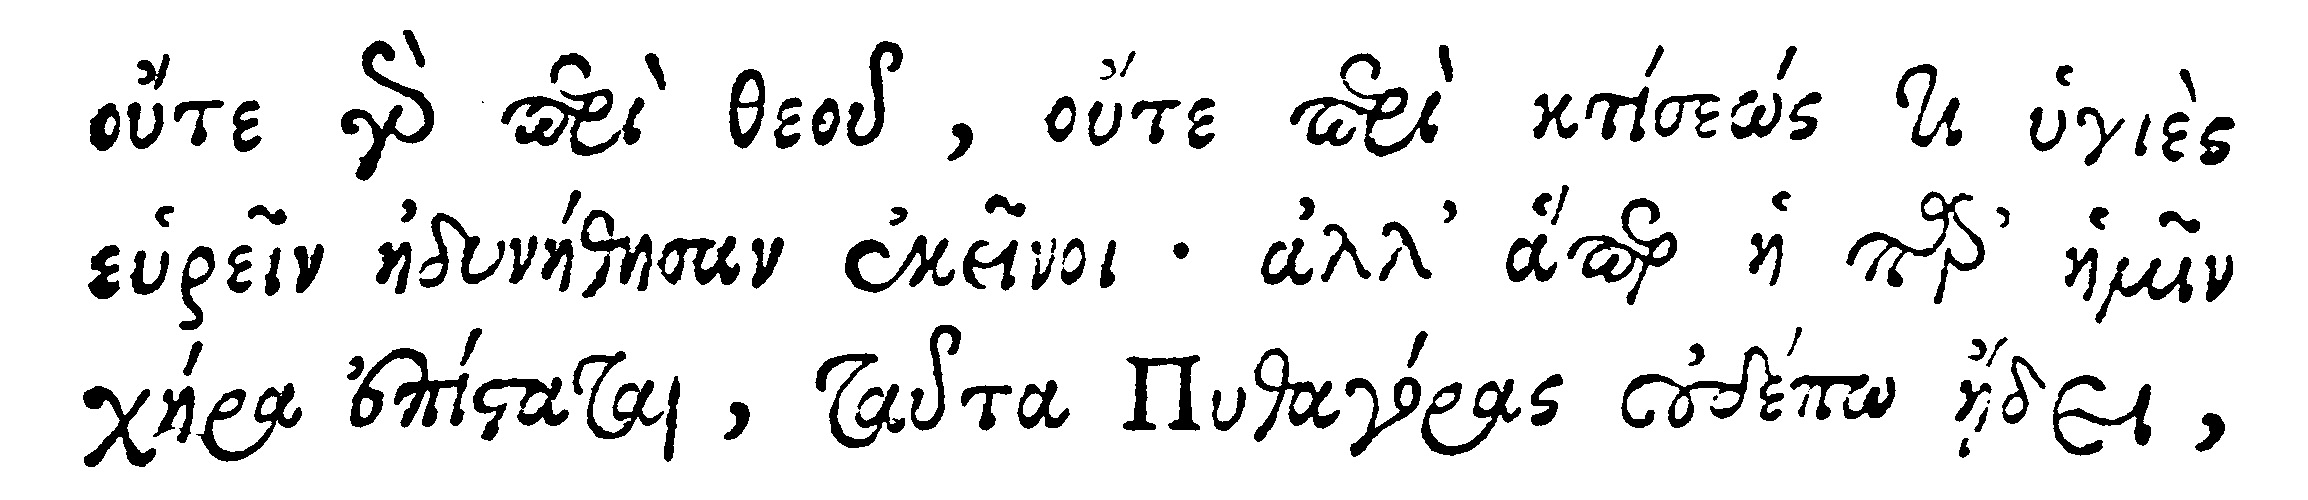 οὔτε γὰρ περὶ θεοῦ, οὔτε περὶ κτίσεώς τι ὑγιὲς
εὑρεῖν ἠδυνήθησαν ἐκεῖνοι· ἀλλ’ ἅπερ ἡ παρ’ ἡμῖν
χήρα ἐπίσταται, ταῦτα Πυθαγόρας οὐδέπω ᾔδει,